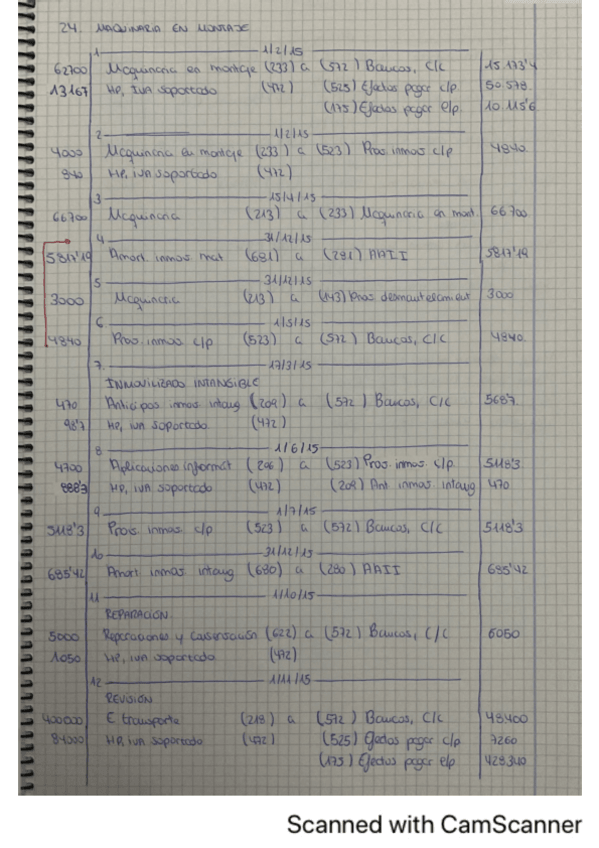 24. MAQUINARIA EN MONTAJE
1 1/2/15
62700 Maquinaria en montaje (233) a (572) Bancos, C/C 15 173'4
13167 HP, IVA soportado (472) (525) Efectos pagar c/p 50 578
(175) Efectos pagar e/p 10 115'6
2 1/2/15
4000 Maquinaria en montaje (233) a (523) Prov. inmov c/p 4840
840 HP, IVA soportado (472)
3 15/4/15
66700 Maquinaria (213) a (233) Maquinaria en mont. 66700
4 31/12/15
5817'19 Amort. inmov mat (681) a (281) AAII 5817'19
5 31/12/15
3000 Maquinaria (213) a (143) Prov desmantelamient 3000
6 1/5/15
4840 Prov. inmov c/p (523) a (572) Bancos, C/C 4840
7. 17/3/15
INMOVILIZADO INTANGIBLE
470 Anticipos inmov intang (209) a (572) Bancos, C/C 568'7
98'7 HP, IVA soportado (472)
8 1/6/15
4700 Aplicaciones informat (206) a (523) Prov. inmov c/p 5118'3
888'3 HP, IVA soportado (472) (209) Ant inmov intang 470
9 1/7/15
5118'3 Prov. inmov c/p (523) a (572) Bancos, C/C 5118'3
10 31/12/15
685'42 Amort inmov intang (680) a (280) AAII 685'42
11 1/10/15
REPARACIÓN
5000 Reparaciones y conservación (622) a (572) Bancos, C/C 6050
1050 HP, IVA soportado (472)
12 1/11/15
REVISIÓN
400000 E transporte (218) a (572) Bancos, C/C 48400
84000 HP, IVA soportado (472) (525) Efectos pagar c/p 7260
(175) Efectos pagar e/p 428340
Scanned with CamScanner